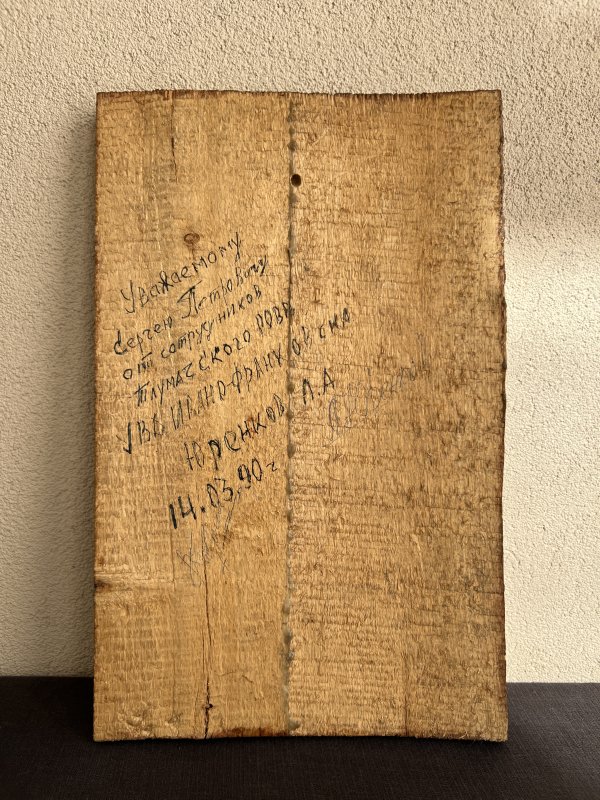 Уважаемому
Сергею Петровичу
от сотрудников
Тлумачского РОВД
УВД Ивано-Франковска
Юренков Л.А
14.03.90г